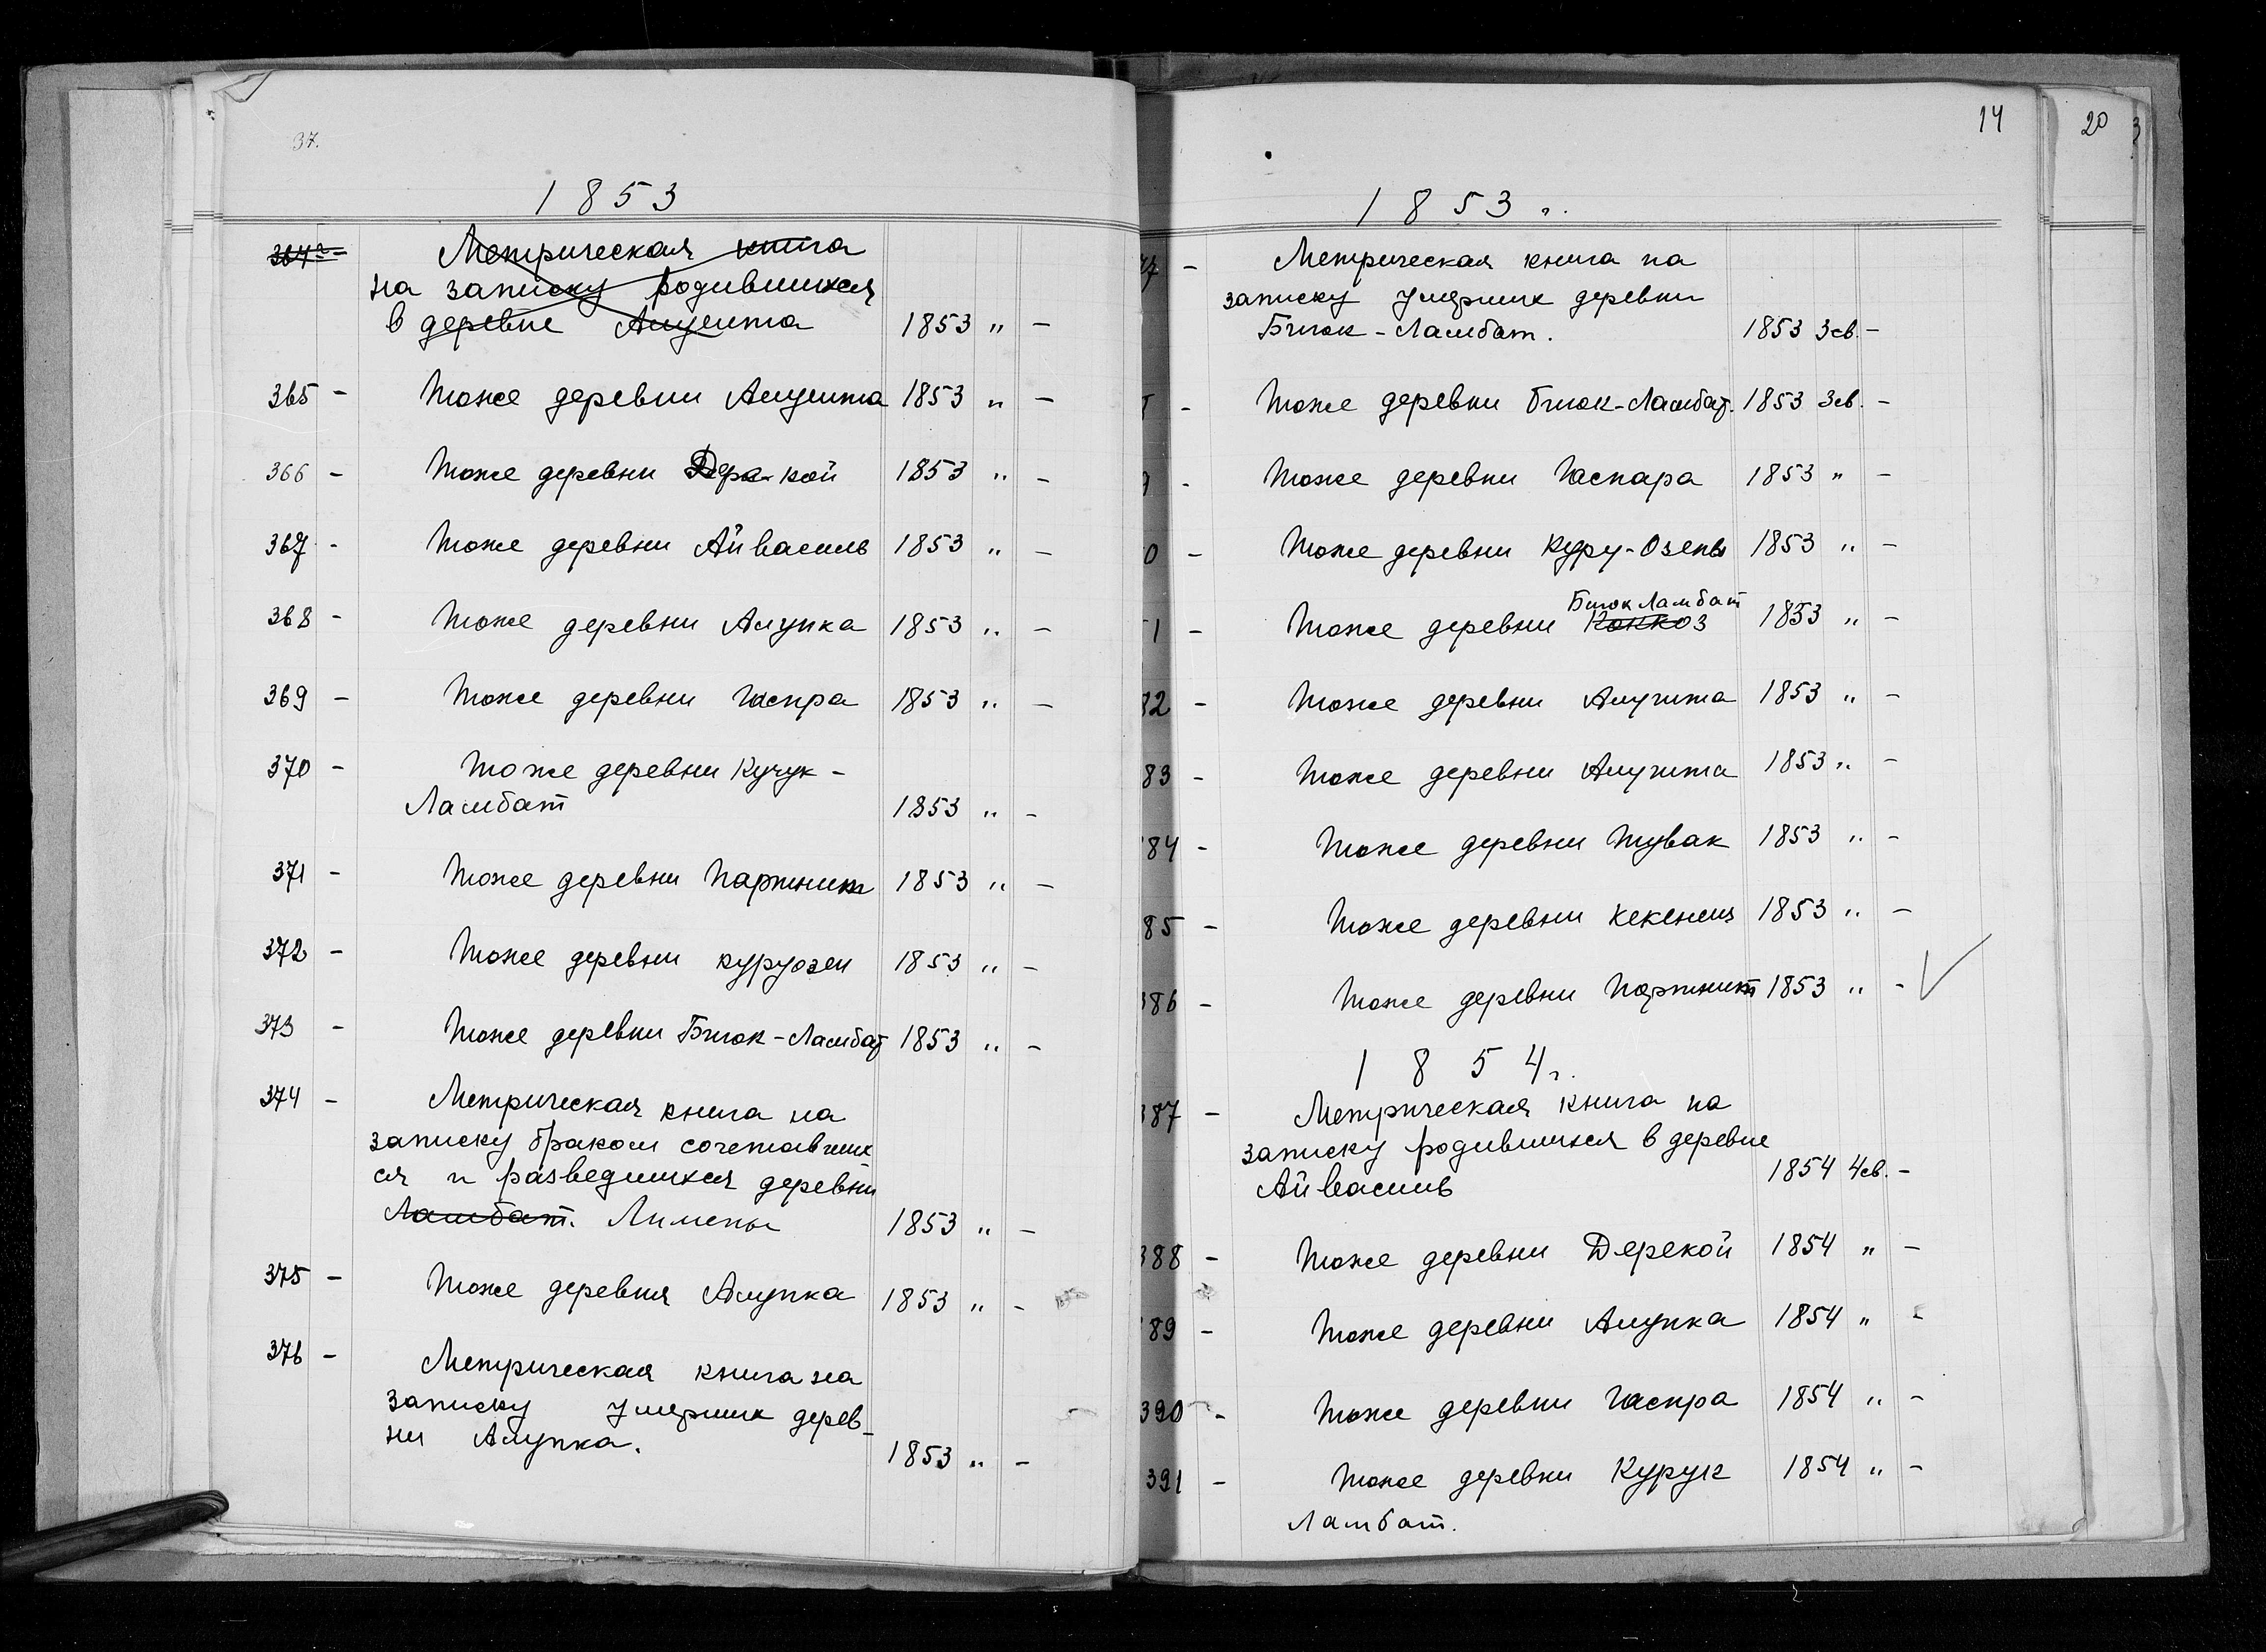 37.
1853
364а - Метрическая книга
на записку родившихся
в деревне Алушта 1853 " -
365 - Тоже деревни Алушта 1853 " -
366 - Тоже деревни Дере-кой 1853 " -
367 - Тоже деревни Айвасиль 1853 " -
368 - Тоже деревни Алупка 1853 " -
369 - Тоже деревни Гаспра 1853 " -
370 - Тоже деревни Кучук-
Ламбат 1853 " -
371 - Тоже деревни Партнит 1853 " -
372 - Тоже деревни Куруозен 1853 " -
373 - Тоже деревни Биюк-Ламбат 1853 " -
374 - Метрическая книга на
записку браком сочетавших
ся и разведшихся деревни
Ламбат. Лимены 1853 " -
375 - Тоже деревня Алупка 1853 " -
376 - Метрическая книга на
записку умерших дерев-
ни Алупка. 1853 " -
14
20
3
1853 г.
77 - Метрическая книга на
записку умерших деревни
Биюк-Ламбат. 1853 3св. -
- Тоже деревни Биюк-Ламбат. 1853 3св. -
- Тоже деревни Гаспара 1853 " -
0 - Тоже деревни Куру-Озень 1853 " -
Биюк Ламбат
1 - Тоже деревни Коккоз 1853 " -
82 - Тоже деревни Алушта 1853 " -
83 - Тоже деревни Алушта 1853 " -
84 - Тоже деревни Тувак 1853 " -
85 - Тоже деревни Кекенеиз 1853 " -
386 - Тоже деревни Партнит 1853 " - V
1854 г.
387 - Метрическая книга на
записку родившихся в деревне
Айвасиль 1854 4св. -
388 - Тоже деревни Дерекой 1854 " -
389 - Тоже деревни Алупка 1854 " -
390 - Тоже деревни Гаспра 1854 " -
391 - Тоже деревни Курук 1854 " -
Ламбат.